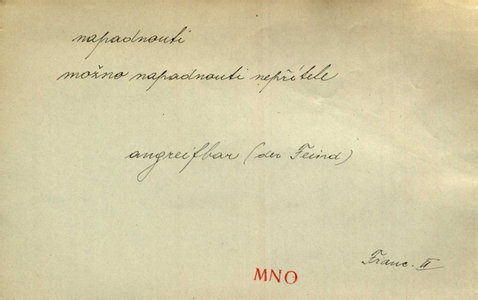 napadnouti
možno napadnouti nepřítele
angreifbar (der Feind)
Franc. II
MNO